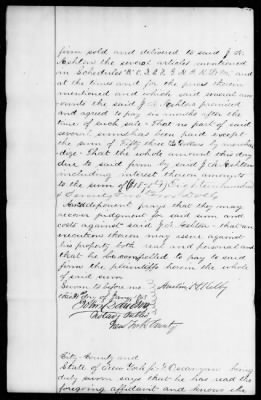 firm sold and delivered to said J. A.
Ashton the several articles mentioned
on Schedules B C D E F G H I K L M and
at the times and for the prices therein
mentioned and which said several am-
ounts the said J A Ashton promised
and agreed to pay six months after the
time of such sale. That no part of said
several sums has been paid except
the sum of Fifty three Dollars by merchan-
dize. That the whole amount this day
due to said firm by said J A Ashton
including interest thereon amounts
to the sum of
And deponent prays that they may
recover judgment for said sum and
costs against said J. A. Ashton. that an
execution therein may issue against
his property both real and personal and
that he be compelled to pay to said
firm the plaintiffs herein the whole
of said sum
Sworn to before me
this day of
Notary Public
New York County
City County and
State of New York being
duly sworn says that he has read the
foregoing affidavit and knows the